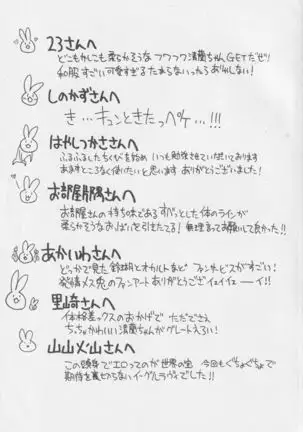 23さんへ
どこもかしこも柔らかそうな フワフワ清蘭ちゃん、GETだぜ!
和服すごい可愛すぎる たまらないったらありゃしない!
しのかずさんへ
き…キュンときたっぺや…!!!
はやしつかささんへ
ふるふるしたちくびを始め いつも勉強させていただいております
あますところなく使いたいと思います ありがとうございました!
お部屋さんへ
お部屋さんの持ち味である すべっとした体のラインが
柔らかそうなおっぱいを引きたてる! 無理言ってお願いして良かった!!
あかいわさんへ
どっかで見た鈴瑚とオカルトなど ファンサービスがすごい!
発情メス兎のファンアート ありがとうございェイェイェーーイ!!
里崎さんへ
体格差ックスのおかげで ただでさえ
ちっちゃかわいい清蘭ちゃんがグレートえろい!
山山火山さんへ
この頭身でエロってのが世界の宝 今回もぐちょぐちょで
期待を裏切らないイーグルラヴィでした!!